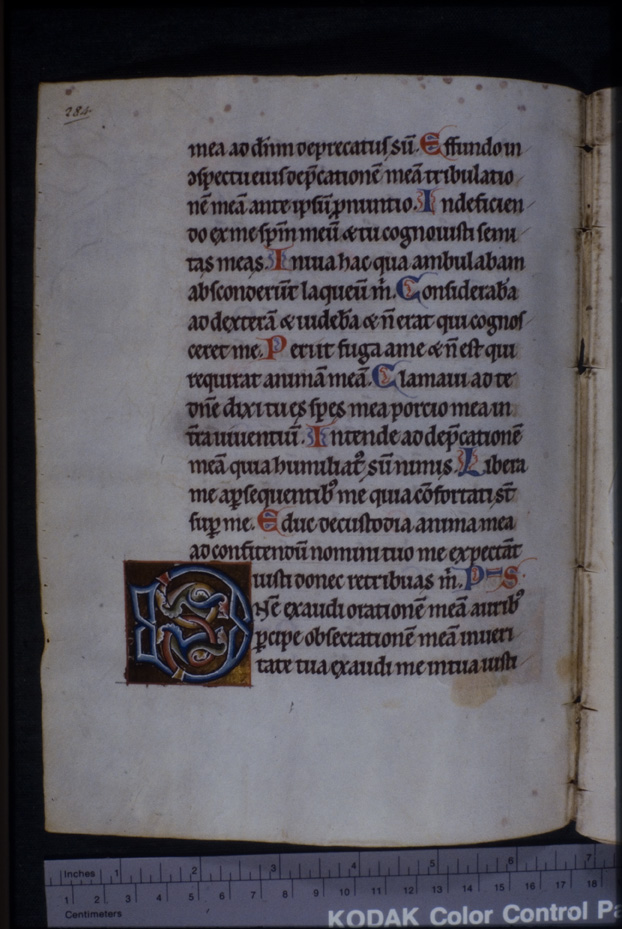 284
mea ad dn̄m deprecatus sū. Effundo in
ↄspectu eius dep̄cationē meā tribulatio
nē meā ante ipsū ꝓnuntio. In deficien
do ex me sp̄m meū & tu cognouisti semi
tas meas. In uia hac qua ambulabam
absconderūt laqueū m̄. Considerabā
ad dexterā & uidebā & n̄ erat qui cognos
ceret me. Periit fuga a me & n̄ est qui
requirat animā meā. Clamaui ad te
dn̄e dixi tu es spes mea portio mea in
t̄ra uiuentiū. Intende ad dep̄cationē
meā quia humiliatꝰ sū nimis. Libera
me a ꝑsequentibꝰ me quia cōfortati st̄
suꝑ me. Educ de custodia anima mea
ad confitendū nomini tuo me expectāt
iusti donec retribuas m̄. PS
Dn̄e exaudi orationē meā auribꝰ
ꝑcipe obsecrationē meā in ueri
tate tua exaudi me in tua iusti
Inches 1 2 3 4 5 6 7
1 2 3 4 5 6 7 8 9 10 11 12 13 14 15 16 17 18
Centimeters
KODAK Color Control Pa